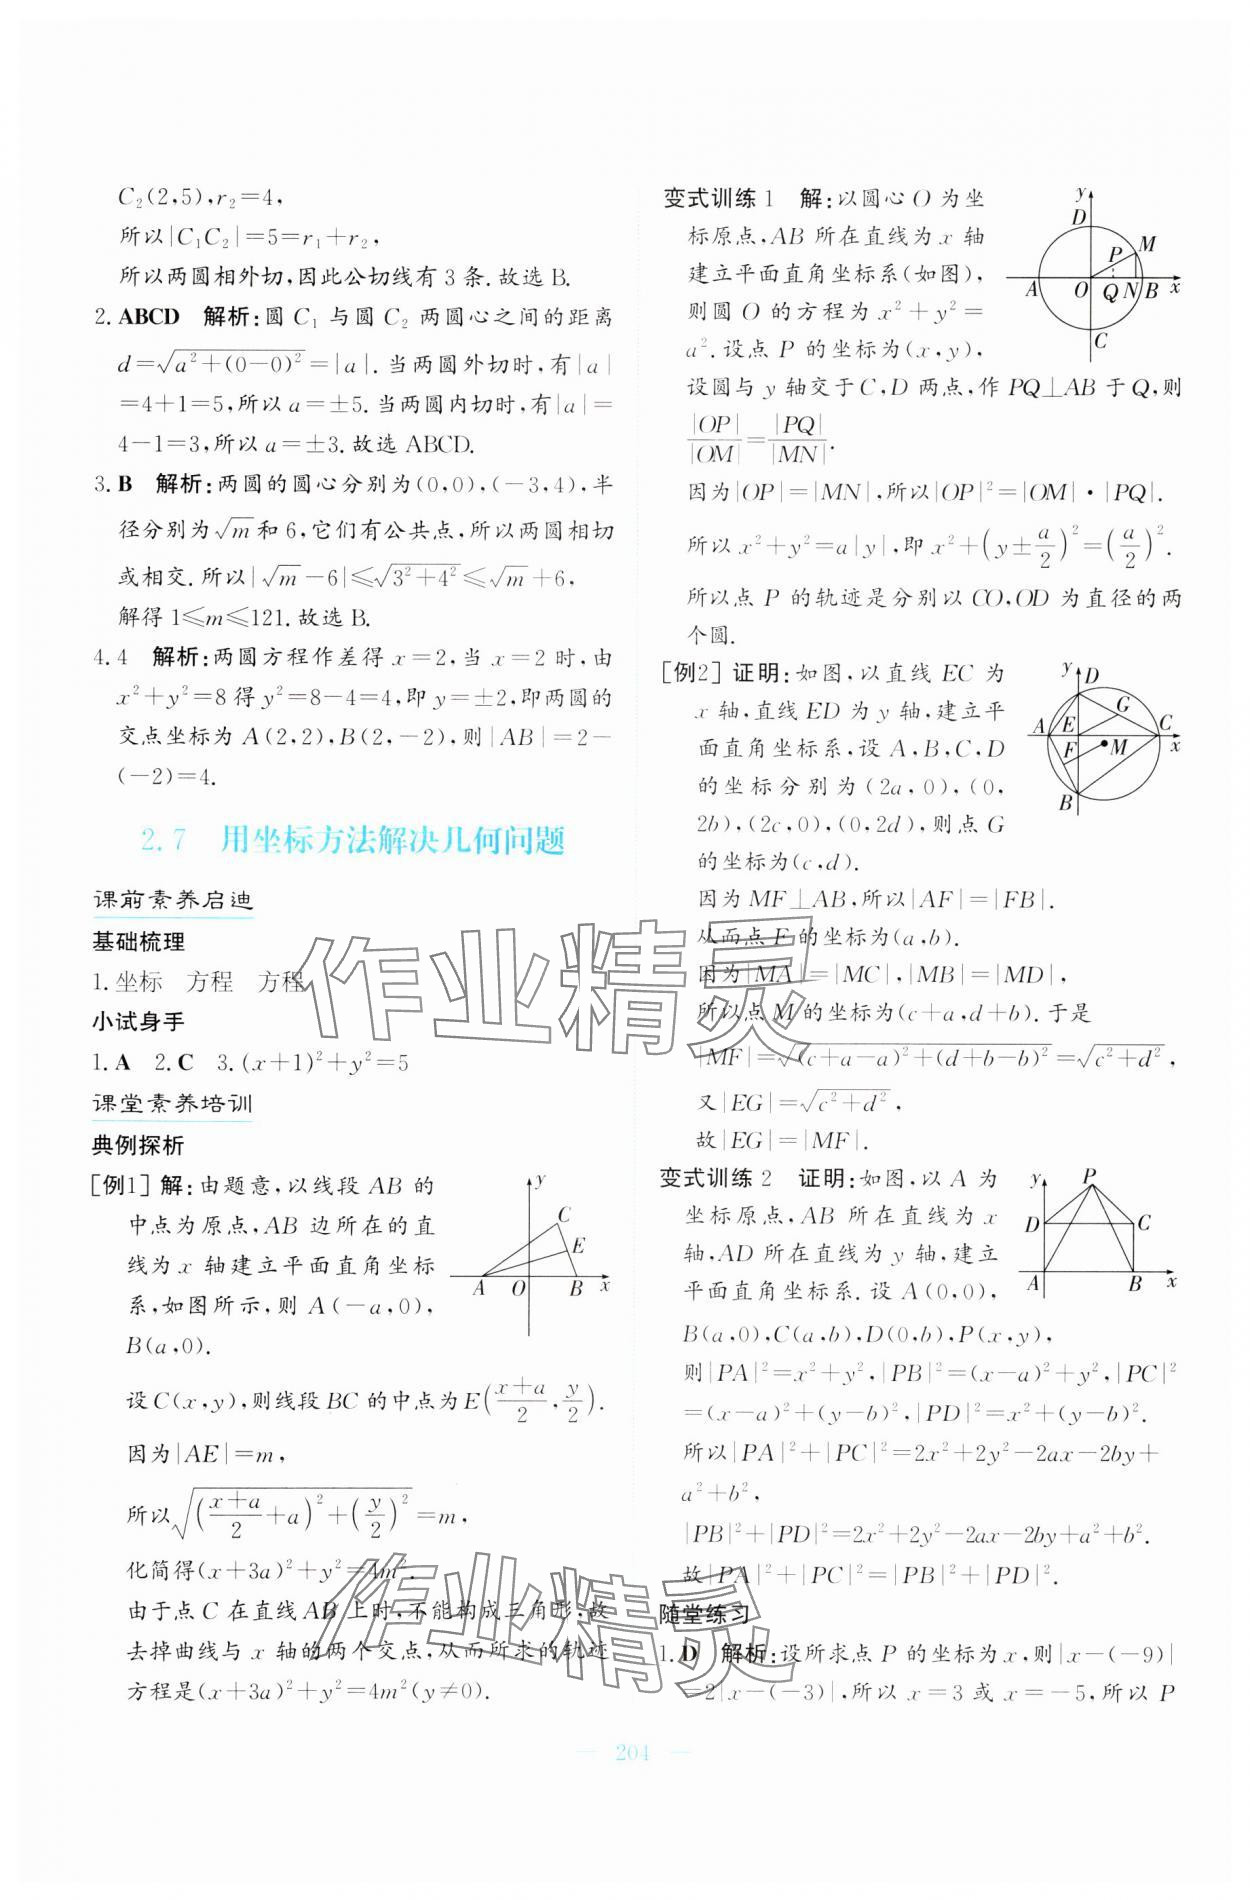 C₂(2,5),r₂=4,
所以|C₁C₂|=5=r₁+r₂,
所以两圆相外切,因此公切线有3条.故选B.
2. ABCD 解析:圆C₁与圆C₂两圆心之间的距离
d=√(a²+(0-0)²)=|a|.当两圆外切时,有|a|
=4+1=5,所以a=±5.当两圆内切时,有|a|=
4-1=3,所以a=±3.故选ABCD.
3. B 解析:两圆的圆心分别为(0,0),(-3,4),半
径分别为√m和6,它们有公共点,所以两圆相切
或相交.所以|√m-6|≤√(3²+4²)≤√m+6,
解得1≤m≤121.故选B.
4. 4 解析:两圆方程作差得x=2,当x=2时,由
x²+y²=8得y²=8-4=4,即y=±2,即两圆的
交点坐标为A(2,2),B(2,-2),则|AB|=2-
(-2)=4.
2.7 用坐标方法解决几何问题
课前素养启迪
基础梳理
1.坐标 方程 方程
小试身手
1. A 2. C 3. (x+1)²+y²=5
课堂素养培训
典例探析
[例1] 解:由题意,以线段AB的
中点为原点,AB边所在的直
线为x轴建立平面直角坐标
系,如图所示,则A(-a,0),
B(a,0).
y
C
E
A O B x
设C(x,y),则线段BC的中点为E((x+a)/2,y/2).
因为|AE|=m,
所以√(((x+a)/2+a)²+(y/2)²)=m,
化简得(x+3a)²+y²=4m².
由于点C在直线AB上时,不能构成三角形,故
去掉曲线与x轴的两个交点,从而所求的轨迹
方程是(x+3a)²+y²=4m²(y≠0).
变式训练1 解:以圆心O为坐
标原点,AB所在直线为x轴
建立平面直角坐标系(如图),
则圆O的方程为x²+y²=
a².设点P的坐标为(x,y),
y
D
P M
A O Q N B x
C
设圆与y轴交于C,D两点,作PQ⊥AB于Q,则
|OP|/|OM|=|PQ|/|MN|.
因为|OP|=|MN|,所以|OP|²=|OM|·|PQ|.
所以x²+y²=a|y|,即x²+(y±a/2)²=(a/2)².
所以点P的轨迹是分别以CO,OD为直径的两
个圆.
[例2] 证明:如图,以直线EC为
x轴,直线ED为y轴,建立平
面直角坐标系,设A,B,C,D
的坐标分别为(2a,0),(0,
2b),(2c,0),(0,2d),则点G
的坐标为(c,d).
y D
G
A E C
F M x
B
因为MF⊥AB,所以|AF|=|FB|.
从而点F的坐标为(a,b).
因为|MA|=|MC|,|MB|=|MD|,
所以点M的坐标为(c+a,d+b).于是
|MF|=√((c+a-a)²+(d+b-b)²)=√(c²+d²),
又|EG|=√(c²+d²),
故|EG|=|MF|.
变式训练2 证明:如图,以A为
坐标原点,AB所在直线为x
轴,AD所在直线为y轴,建立
平面直角坐标系.设A(0,0),
y P
D C
A B x
B(a,0),C(a,b),D(0,b),P(x,y),
则|PA|²=x²+y²,|PB|²=(x-a)²+y²,|PC|²
=(x-a)²+(y-b)²,|PD|²=x²+(y-b)².
所以|PA|²+|PC|²=2x²+2y²-2ax-2by+
a²+b²,
|PB|²+|PD|²=2x²+2y²-2ax-2by+a²+b².
故|PA|²+|PC|²=|PB|²+|PD|².
随堂练习
1. D 解析:设所求点P的坐标为x,则|x-(-9)|
=2|x-(-3)|,所以x=3或x=-5,所以P
— 204 —
作业精灵
作业精灵